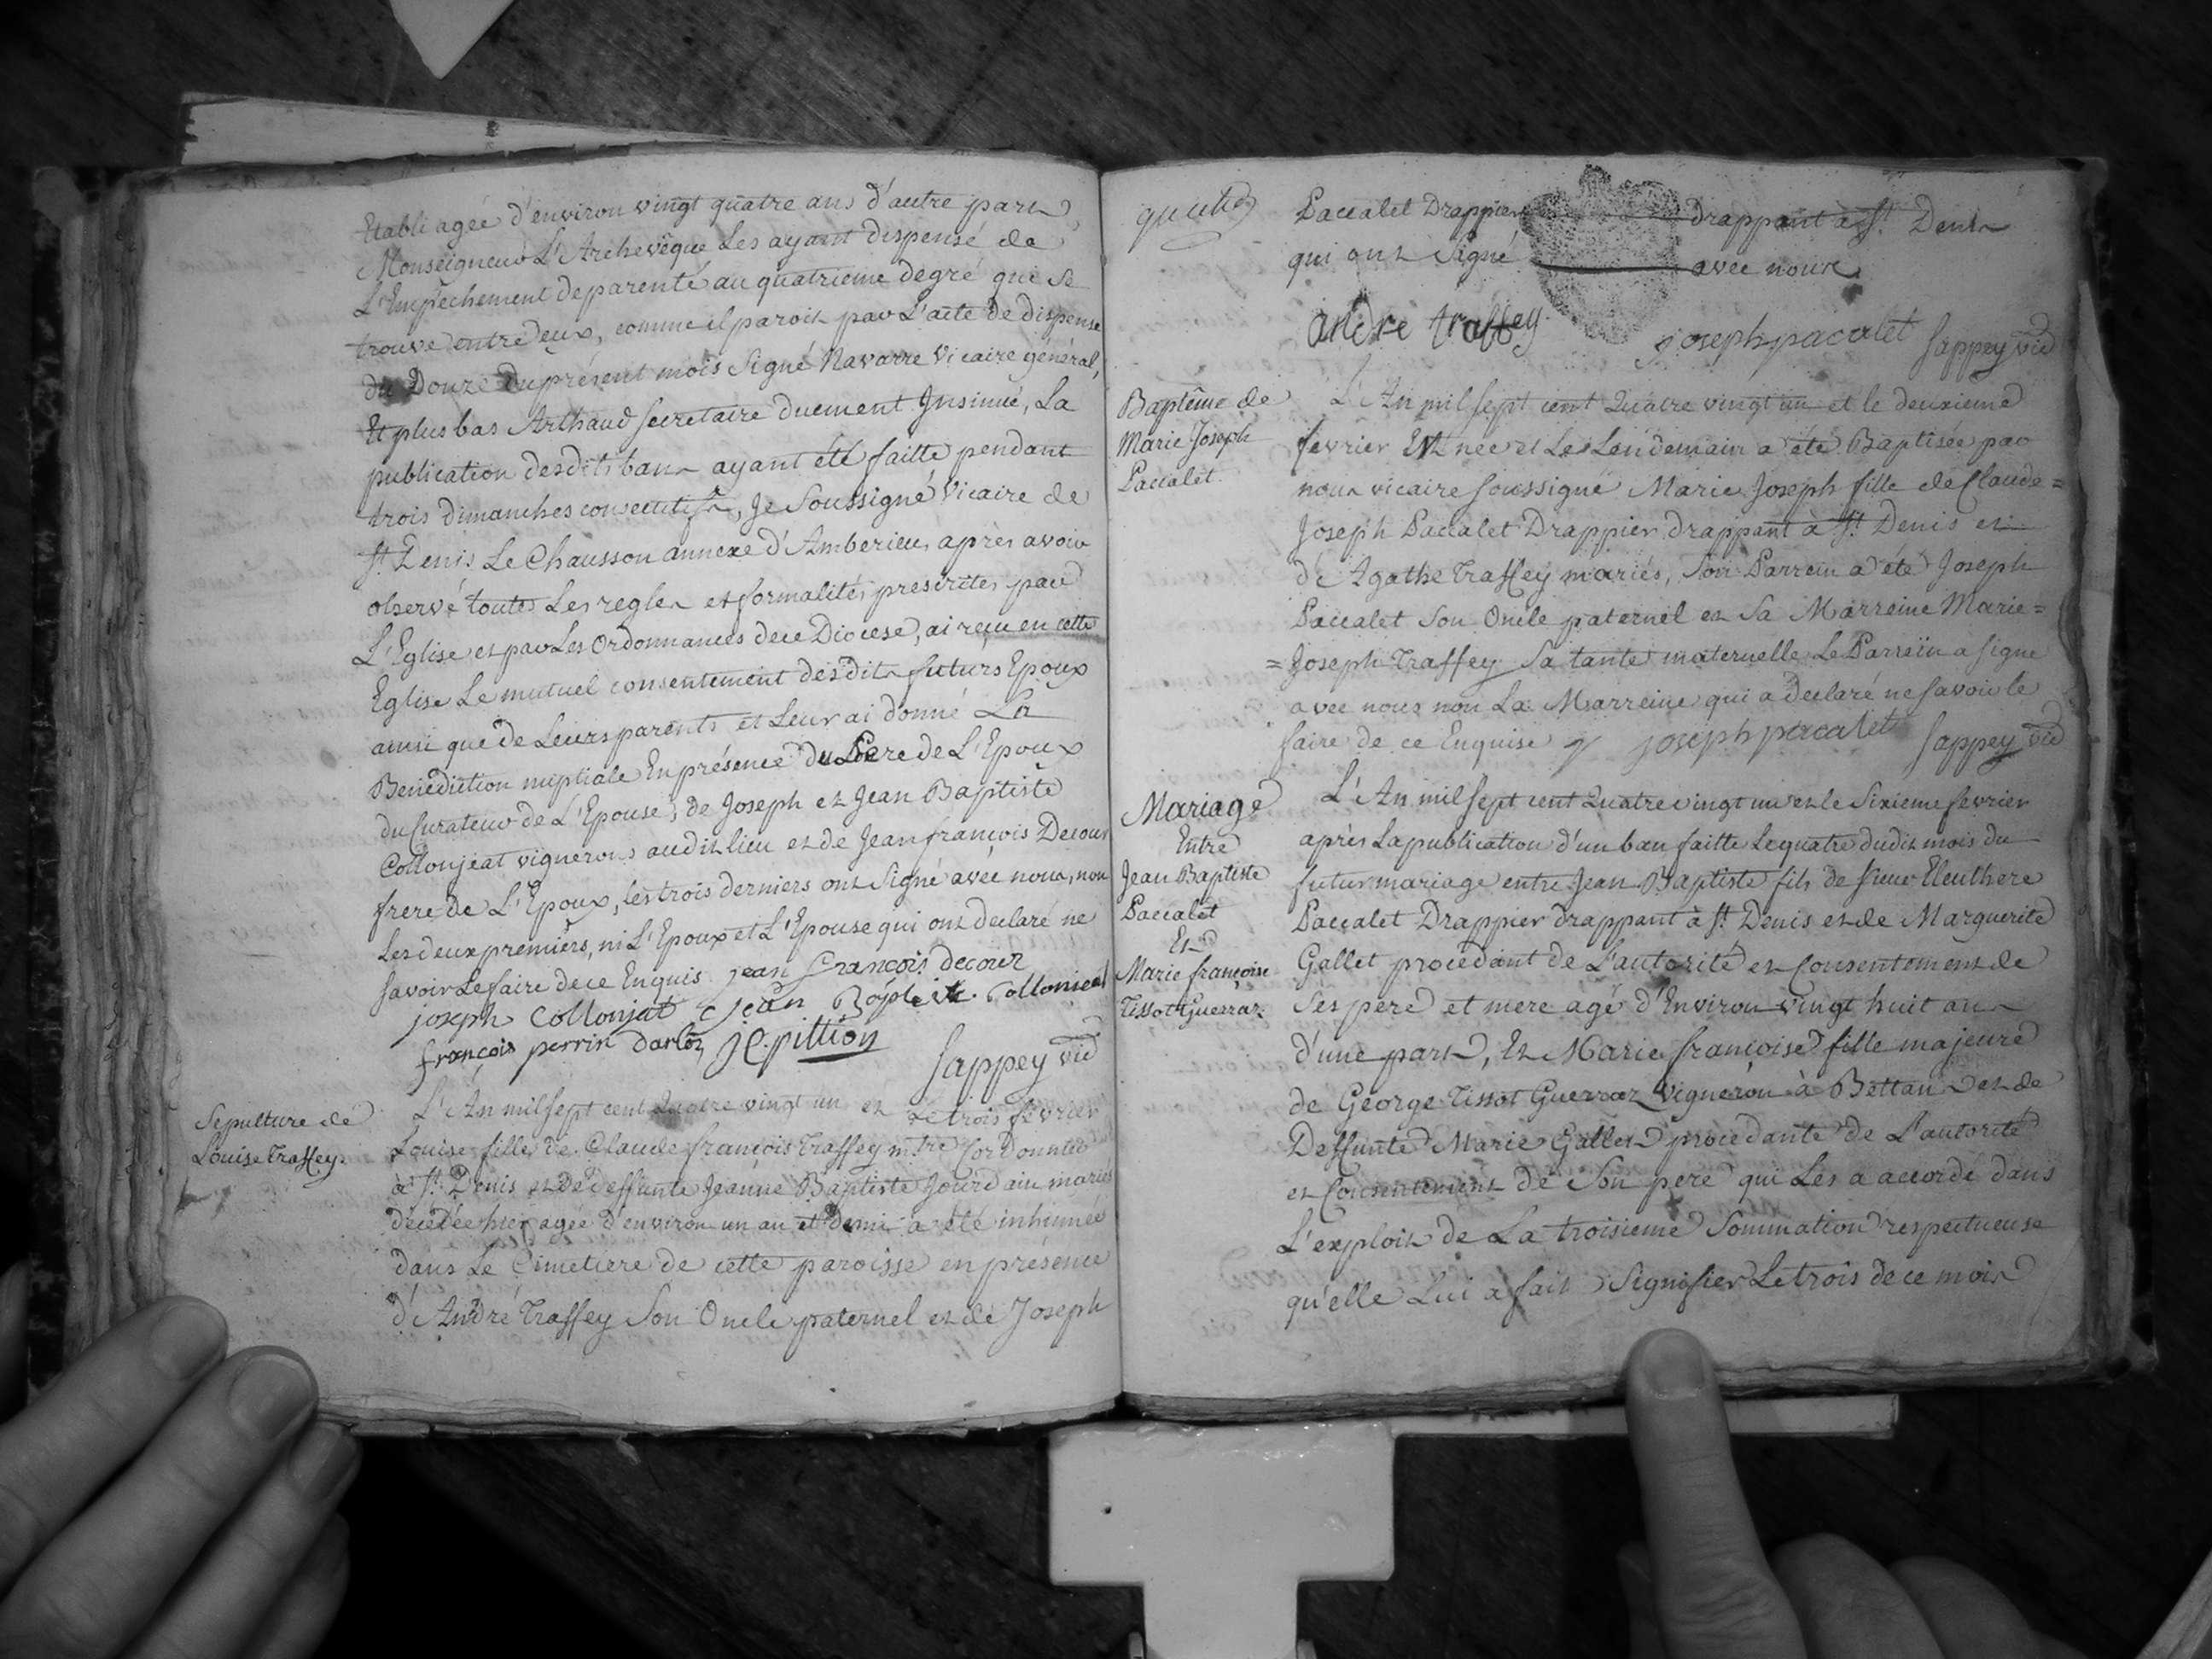 Etabli agée d'environ vingt quatre ans d'autre part
Monseigneur L'Archevêque Les ayant dispensé de
L'Empêchement de parenté au quatrieme degré qui se
trouve entre eux, comme il paroit par L'acte de dispense
du Douze du présent mois Signé Navarre Vicaire général,
Et plus bas Arthaud Secretaire duement Insinué, La
publication desdits bans ayant été faitte pendant
trois dimanches consecutifs, Je Soussigné Vicaire de
St. Denis Le Chausson annexe d'Amberieu, après avoir
observé toutes Les regles et formalités prescrites par
L'Eglise et par Les Ordonnances de ce Diocese, ai reçu en cette
Eglise Le mutuel consentement desdits futurs Epoux
ainsi que de Leurs parents et Leur ai donné La
Benediction nuptiale En présence du Pere de L'Epoux
du Curateur de L'Epouse, de Joseph et Jean Baptiste
Collonjeat vignerons audit lieu et de Jean françois Decour
frere de L'Epoux, les trois derniers ont Signé avec nous, non
Les deux premiers, ni L'Epoux et L'Epouse qui ont declaré ne
Savoir Le faire de ce Enquis. jean françois decour
joseph Collonjat jean Baptiste Collonieat
françois perrin darloz J C pittion
Sappey vic
Sepulture de
Louise Traffey.
L'An mil sept cent Quatre vingt un et Le trois fevrier
Louise fille de Claude françois Traffey mtre Cordonnier
à St. Denis et de deffunte Jeanne Baptiste Jourdain mariés
décédée hier agée d'environ un an et demi a été inhumée
dans Le Cimetiere de cette paroisse en présence
d'André Traffey Son Oncle paternel et de Joseph
Paccalet Drappier drappant à St. Denis
qui ont Signé avec nous.
andre traffey
joseph pacalet Sappey vic
Baptême de
Marie Joseph
Paccalet.
L'An mil sept cent Quatre vingt un et le deuxieme
fevrier Est née et Le Lendemain a été Baptisée par
nous vicaire soussigné Marie Joseph fille de Claude=
Joseph Paccalet Drappier drappant à St. Denis et
de Agathe Traffey mariés, Son Parrein a été Joseph
Paccalet Son Oncle paternel et Sa Marreine Marie=
=Joseph Traffey Sa tante maternelle Le Parrein a signé
avec nous non La Marreine qui a declaré ne savoir le
faire de ce Enquise joseph pacalet Sappey vic
Mariage
Entre
Jean Baptiste
Paccalet
Et
Marie françoise
Tissot Guerraz.
L'An mil sept cent Quatre vingt un et le Sixieme fevrier
après La publication d'un ban faitte Le quatre dudit mois du
futur mariage entre Jean Baptiste fils de Sieur Eleuthere
Paccalet Drappier drappant à St. Denis et de Marguerite
Gallet procedant de L'autorité et Consentement de
Ses pere et mere agé d'Environ vingt huit ans
d'une part, Et Marie françoise fille majeure
de George Tissot Guerraz Vigneron à Bettan et de
Deffunte Marie Gallet procedante de L'autorité
et Consentement de Son pere qui Les a accordé dans
L'exploit de La troisieme Sommation respectueuse
qu'elle Lui a fait Signifier Le trois de ce mois